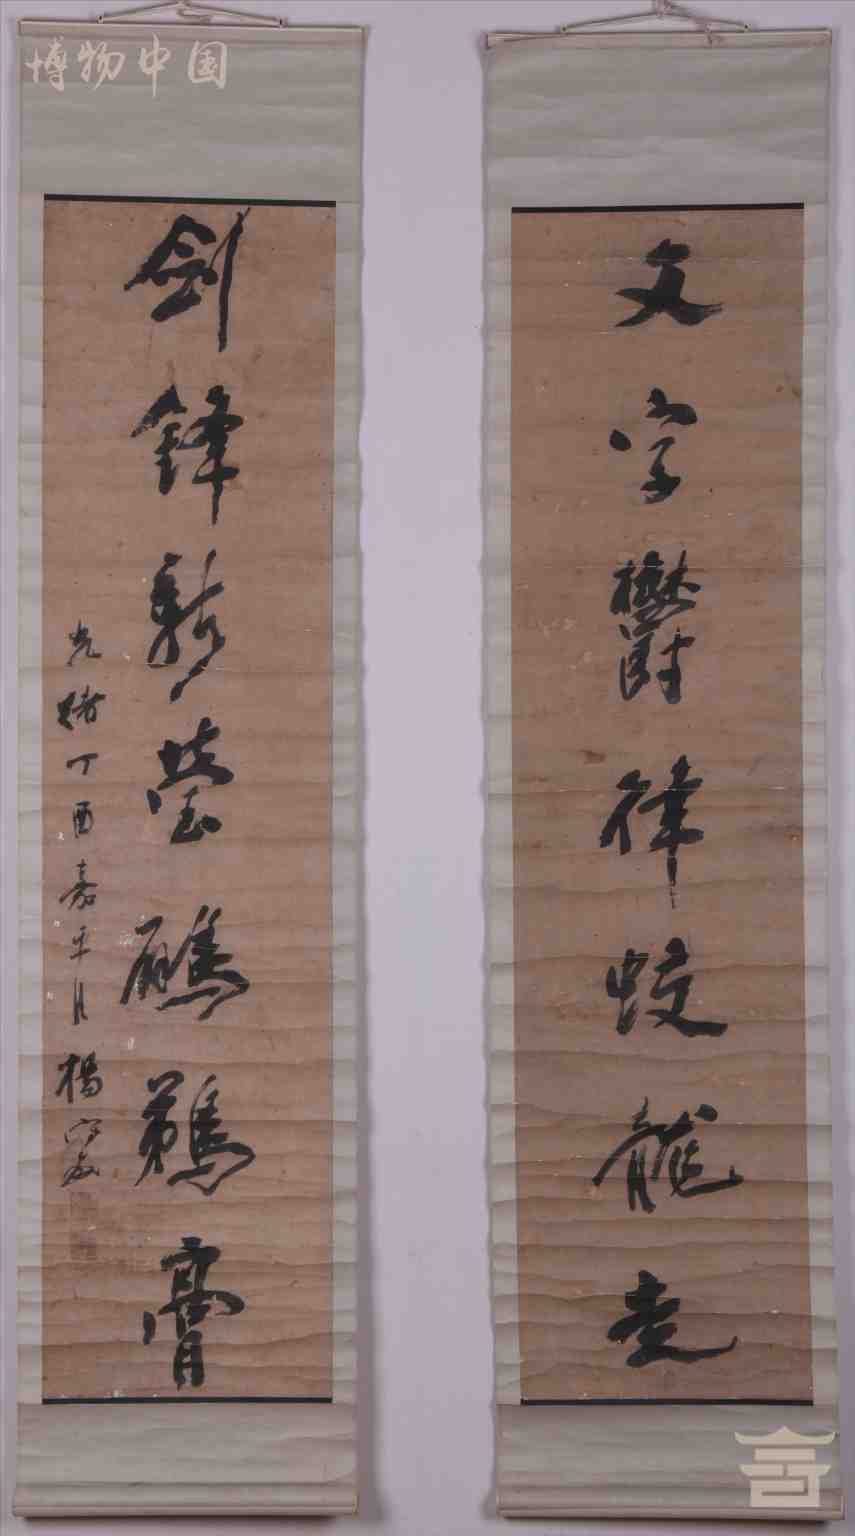 博物中国
文字鬱律蛟龍走
劍鋒新瑩鸊鵜膏
光緒丁酉嘉平月楊守敬